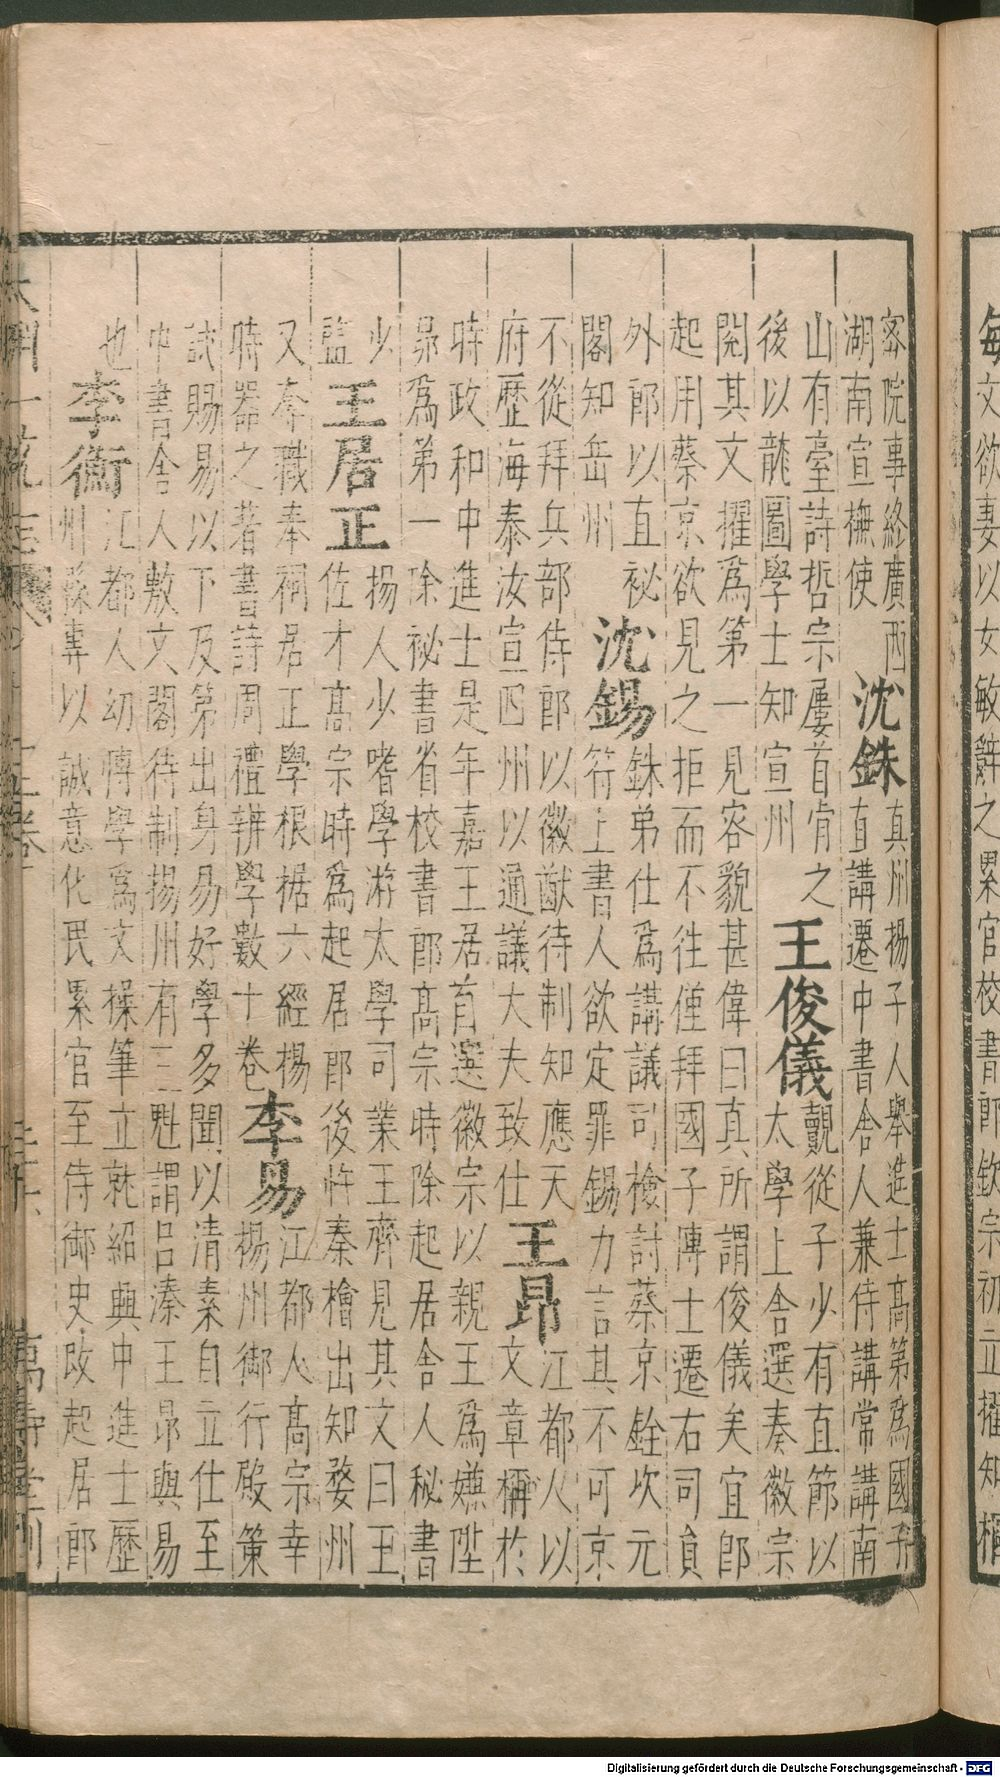 每文欲妻以女敏辭之累官校書郎欽宗初立擢知樞
密院事終廣西
湖南宣撫使
沈銖
真州揚子人舉進士高第爲國子
直講遷中書舍人兼侍講常講南
山有臺詩哲宗屢首肯之
後以龍圖學士知宣州
王俊儀
覿從子少有直節以
太學上舍選奏徽宗
閱其文擢爲第一見容貌甚偉曰真所謂俊儀矣宜即
起用蔡京欲見之拒而不往僅拜國子博士遷右司員
外郎以直祕
閣知岳州
沈錫
銖弟仕爲講議司檢討蔡京銓次元
符上書人欲定罪錫力言其不可京
不從拜兵部侍郎以徽猷待制知應天
府歷海泰汝宣四州以通議大夫致仕
王昂
江都人以
文章稱於
時政和中進士是年嘉王居首選徽宗以親王爲嫌陞
昴爲第一除祕書省校書郎高宗時除起居舍人秘書
少
監
王居正
揚人少嗜學游太學司業王齊見其文曰王
佐才高宗時爲起居郎後忤秦檜出知婺州
又奪職奉祠居正學根据六經楊
時器之著書詩周禮辨學數十卷
李易
江都人高宗幸
揚州御行殿策
試賜易以下及第出身易好學多聞以清素自立仕至
中書舍人敷文閣待制揚州有三魁謂呂溱王昴與易
也
李衡
江都人幼博學爲文操筆立就紹興中進士歷
州縣專以誠意化民累官至侍御史改起居郎
大明一統志
萬壽堂刊
Digitalisierung gefördert durch die Deutsche Forschungsgemeinschaft - DFG